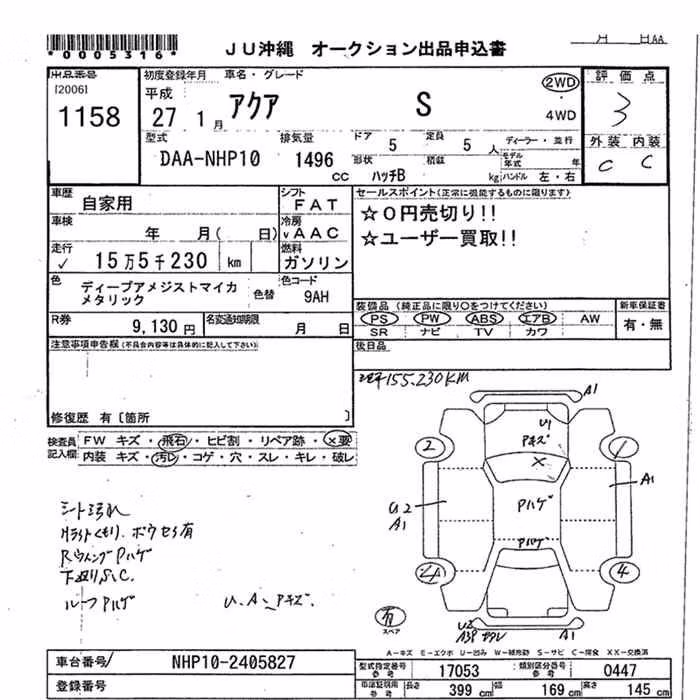 *0005316*
JU沖縄 オークション出品申込書
月 日AA
出品番号 初度登録年月 車名・グレード 評価点
[2006] 平成 2WD
1158 27 1月 アクア S ・ 3
4WD
型式 排気量 ドア 5 定員 5人 ディーラー・並行 外装 内装
DAA-NHP10 1496 cc 形状 ハッチB 積載 kg モデル年式 年 C C
ハンドル 左・右
車歴 自家用 シフト FAT セールスポイント(正常に機能するものに限ります)
車検 年 月( 日) 冷房 AAC ☆0円売切り!!
走行 ✓ 15万5千230 km 燃料 ガソリン ☆ユーザー買取!!
色 ディープアメジストマイカ 色替 色コード 9AH
メタリック
装備品(純正品に限り○をつけてください) 新車保証書
R券 9,130円 名変通知期限 月 日 PS PW ABS エアB AW 有・無
SR ナビ TV カワ
注意事項申告欄(不具合内容等は具体的に記入して下さい) 後日品
155,230KM
修復歴 有〔箇所 〕
検査員 FW キズ・飛石・ヒビ割・リペア跡・×要
記入欄 内装 キズ・汚レ・コゲ・穴・スレ・キレ・破レ
A1
U1
Pキズ
2
×
A1
U2
A1
Pハゲ
Pハゲ
4
シート汚れ
Pハゲ
下廻りS,C.
ルーフPハゲ U.A、Pキズ.
有
スペア
U2
A1
A-キズ E-エクボ U-凹み W-補修跡 S-サビ C-腐食 XX-交換済
車台番号 NHP10-2405827 型式指定番号 参考 17053 類別区分番号 参考 0447
登録番号 参考 長さ 399cm 幅 169cm 高さ 145cm